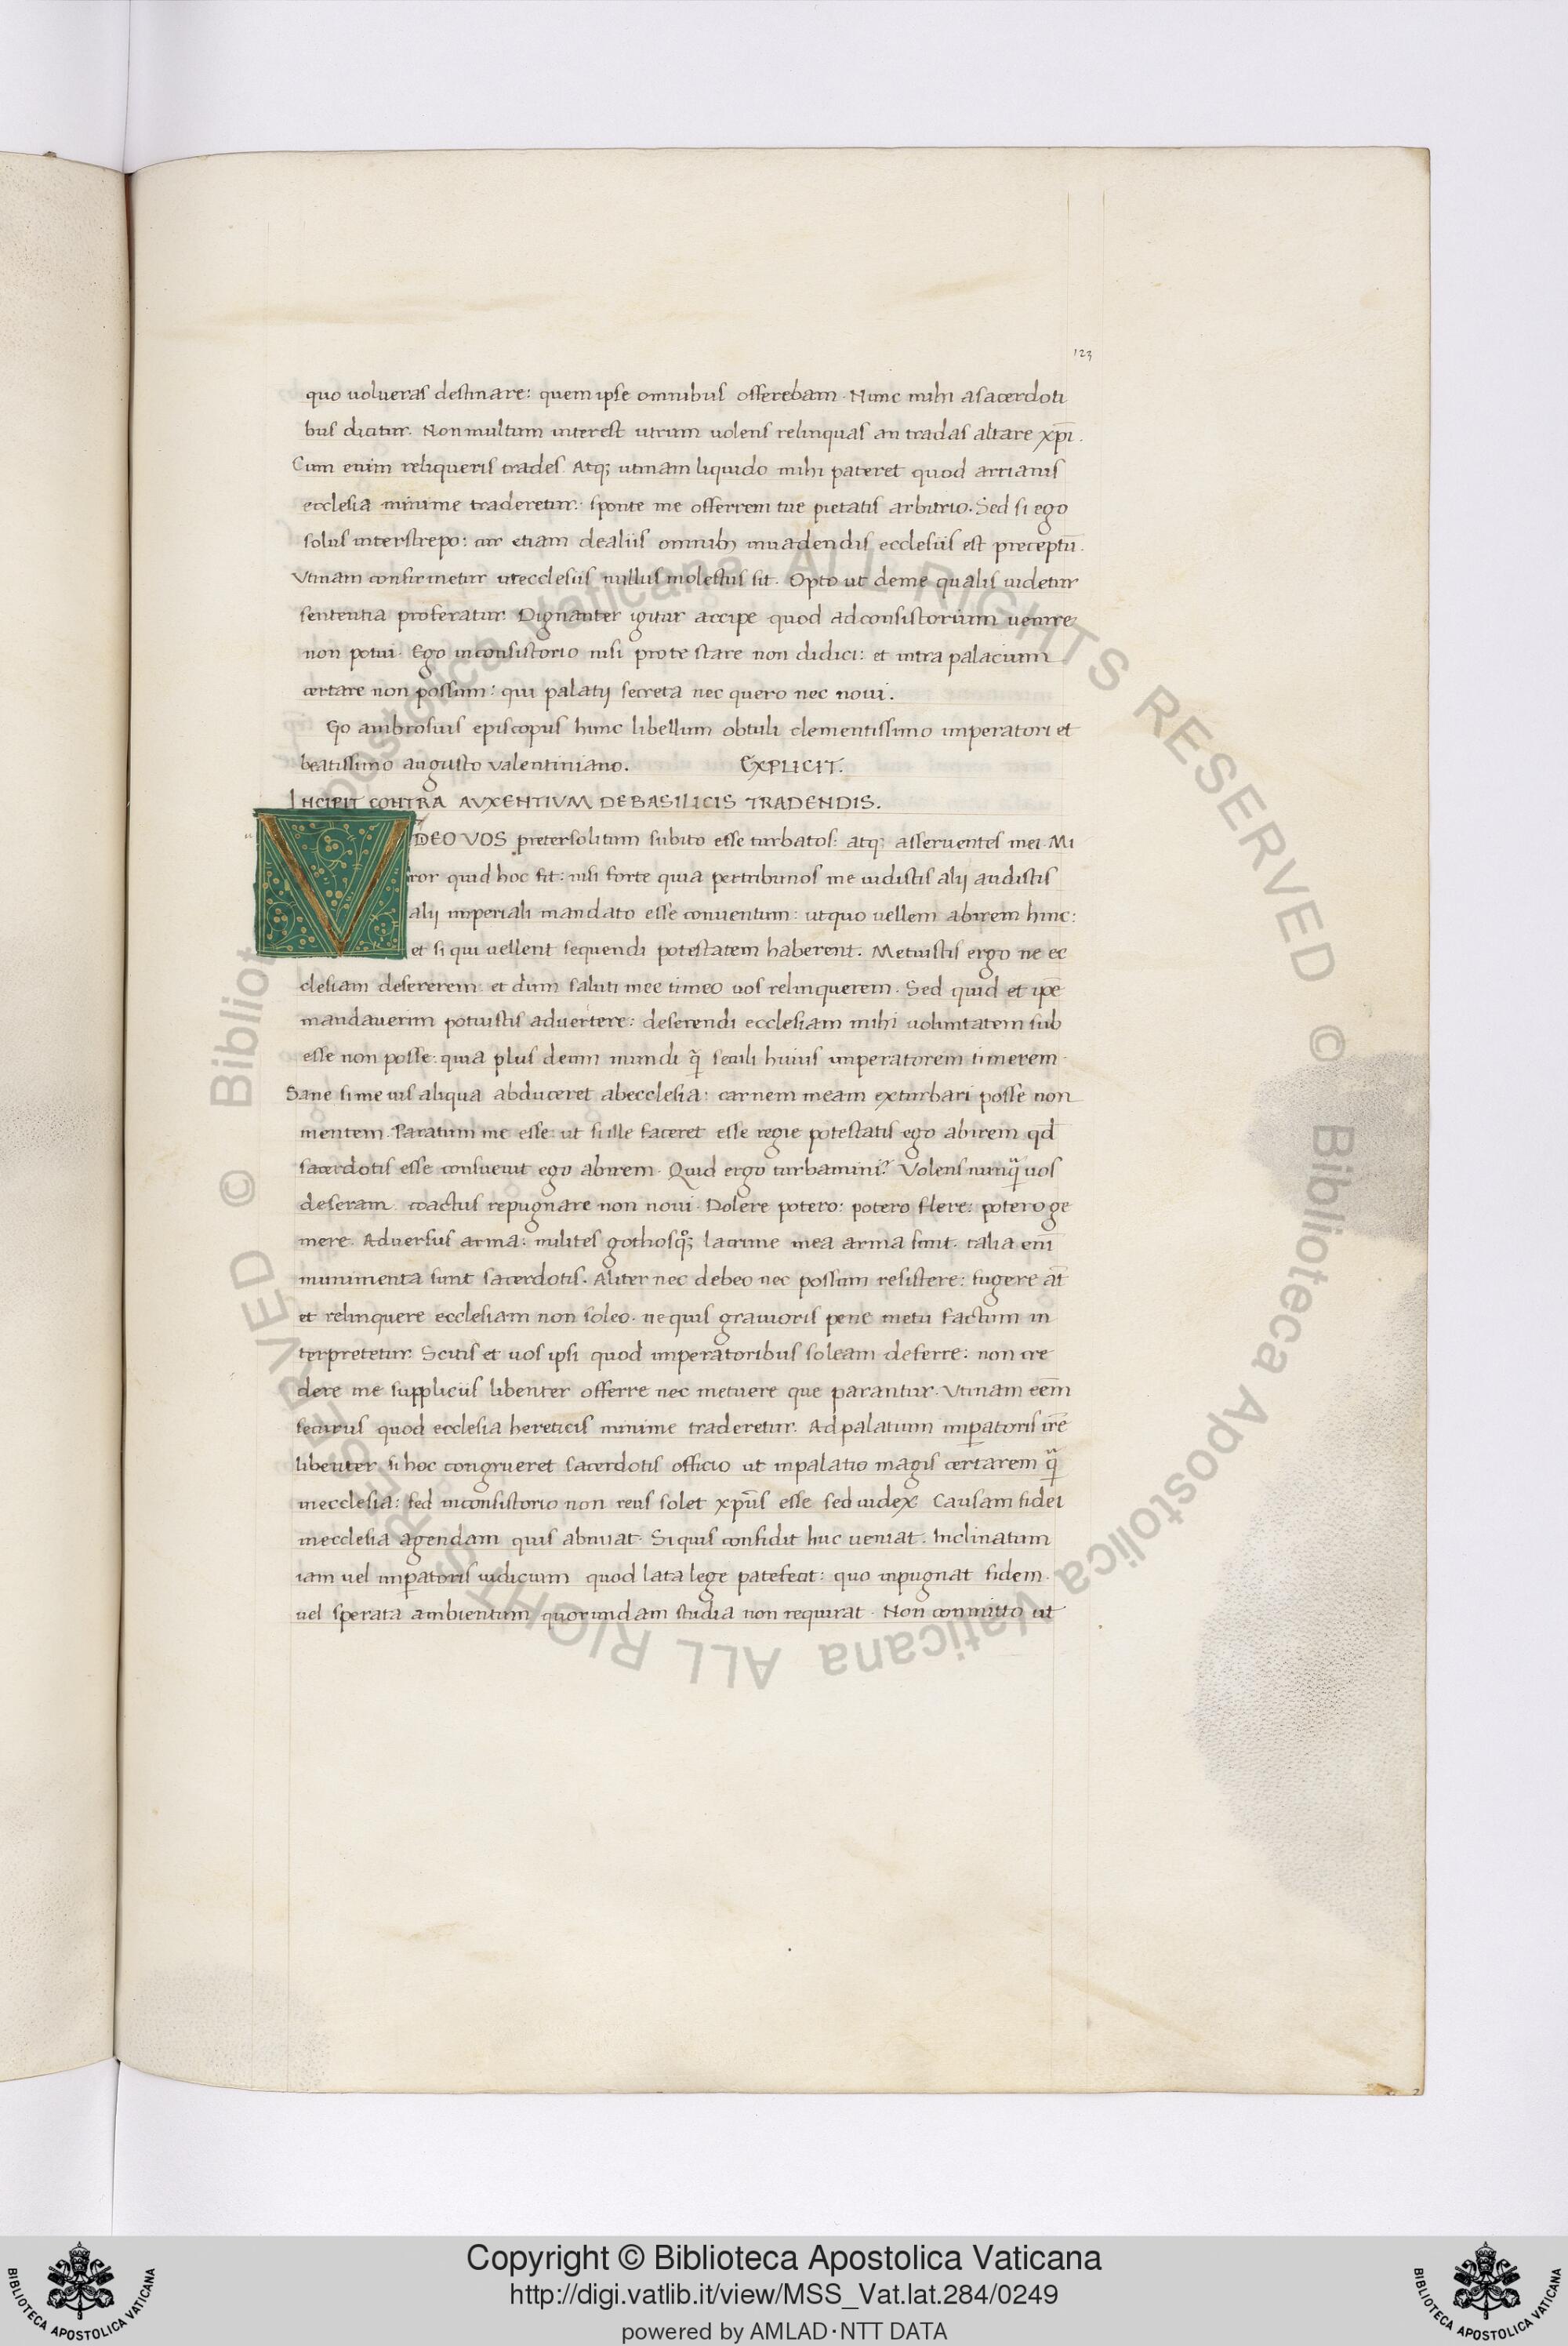 123
quo uolueras destinare: quem ipse omnibus offerebam. Nunc mihi asacerdoti
bus dicitur. Nonmultum interest utrum uolens relinquas an tradas altare xp̄i.
Cum enim reliqueris trades. Atq; utinam liquido mihi pateret quod arrianis
ecclesia minime traderetur: sponte me offerrem tue pietatis arbitrio. Sed si ego
solus interstrepo: cur etiam dealiis omnibꝫ inuadendis ecclesiis est preceptū.
Vtinam confirmetur utecclesiis nullus molestus sit. Opto ut deme qualis uidetur
sententia proferatur. Dignanter igitur accipe quod adconsistorium uenire
non potui. Ego inconsistorio nisi prote stare non didici: et intra palacium
certare non possum: qui palatij secreta nec quero nec noui.
Ego ambrosius episcopus hunc libellum obtuli clementissimo imperatori et
beatissimo augusto valentiniano. EXPLICIT.
INCIPIT CONTRA AVXENTIVM DEBASILICIS TRADENDIS.
VIDEO VOS pretersolitum subito esse turbatos: atq; asseruentes mei. Mi
ror quid hoc sit: nisi forte quia pertribunos me uidistis alij audistis
alij imperiali mandato esse conuentum: utquo uellem abirem hinc:
et si qui uellent sequendi potestatem haberent. Metuistis ergo ne ec
clesiam desererem: et dum saluti mee timeo uos relinquerem. Sed quid et ip̄e
mandauerim potuistis aduertere: deserendi ecclesiam mihi uoluntatem sub
esse non posse: quia plus deum mundi q̄ seculi huius imperatorem timerem.
Sane sime uis aliqua abduceret abecclesia: carnem meam exturbari posse non
mentem. Paratum me esse: ut si ille faceret esse regie potestatis ego abirem qd̄
sacerdotis esse consueuit ego abirem. Quid ergo turbamini? Volens nunq̄ uos
deseram. coactus repugnare non noui. Dolere potero: potero flere: potero ge
mere. Aduersus arma: milites gothosq̊; lacrime mea arma sunt. talia eni̅
munimenta sunt sacerdotis. Aliter nec debeo nec possum resistere: fugere at̄
et relinquere ecclesiam non soleo. nequis grauioris pene metu factum in
terpretetur. Scitis et uos ipsi quod imperatoribus soleam deferre: non cre
dere me suppliciis libenter offerre nec metuere que parantur. Vtinam eēm
securus quod ecclesia hereticis minime traderetur. Adpalatium imp̄atoris ire̅
libenter. si hoc congrueret sacerdotis officio ut inpalatio magis certarem q̄
inecclesia: sed inconsistorio non reus solet xp̄us esse sed iudex. Causam fidei
inecclesia agendam quis abnuat. Siquis confidit huc ueniat. Inclinatum
iam uel imp̄atoris iudicium quod lata lege patefecit: quo inpugnat fidem.
uel sperata ambientum quorundam studia non requirat. Non committo ut
© Biblioteca Apostolica Vaticana ALL RIGHTS RESERVED
© Biblioteca Apostolica Vaticana ALL RIGHTS RESERVED
BIBLIOTECA APOSTOLICA VATICANA
Copyright © Biblioteca Apostolica Vaticana
http://digi.vatlib.it/view/MSS_Vat.lat.284/0249
powered by AMLAD·NTT DATA
BIBLIOTECA APOSTOLICA VATICANA